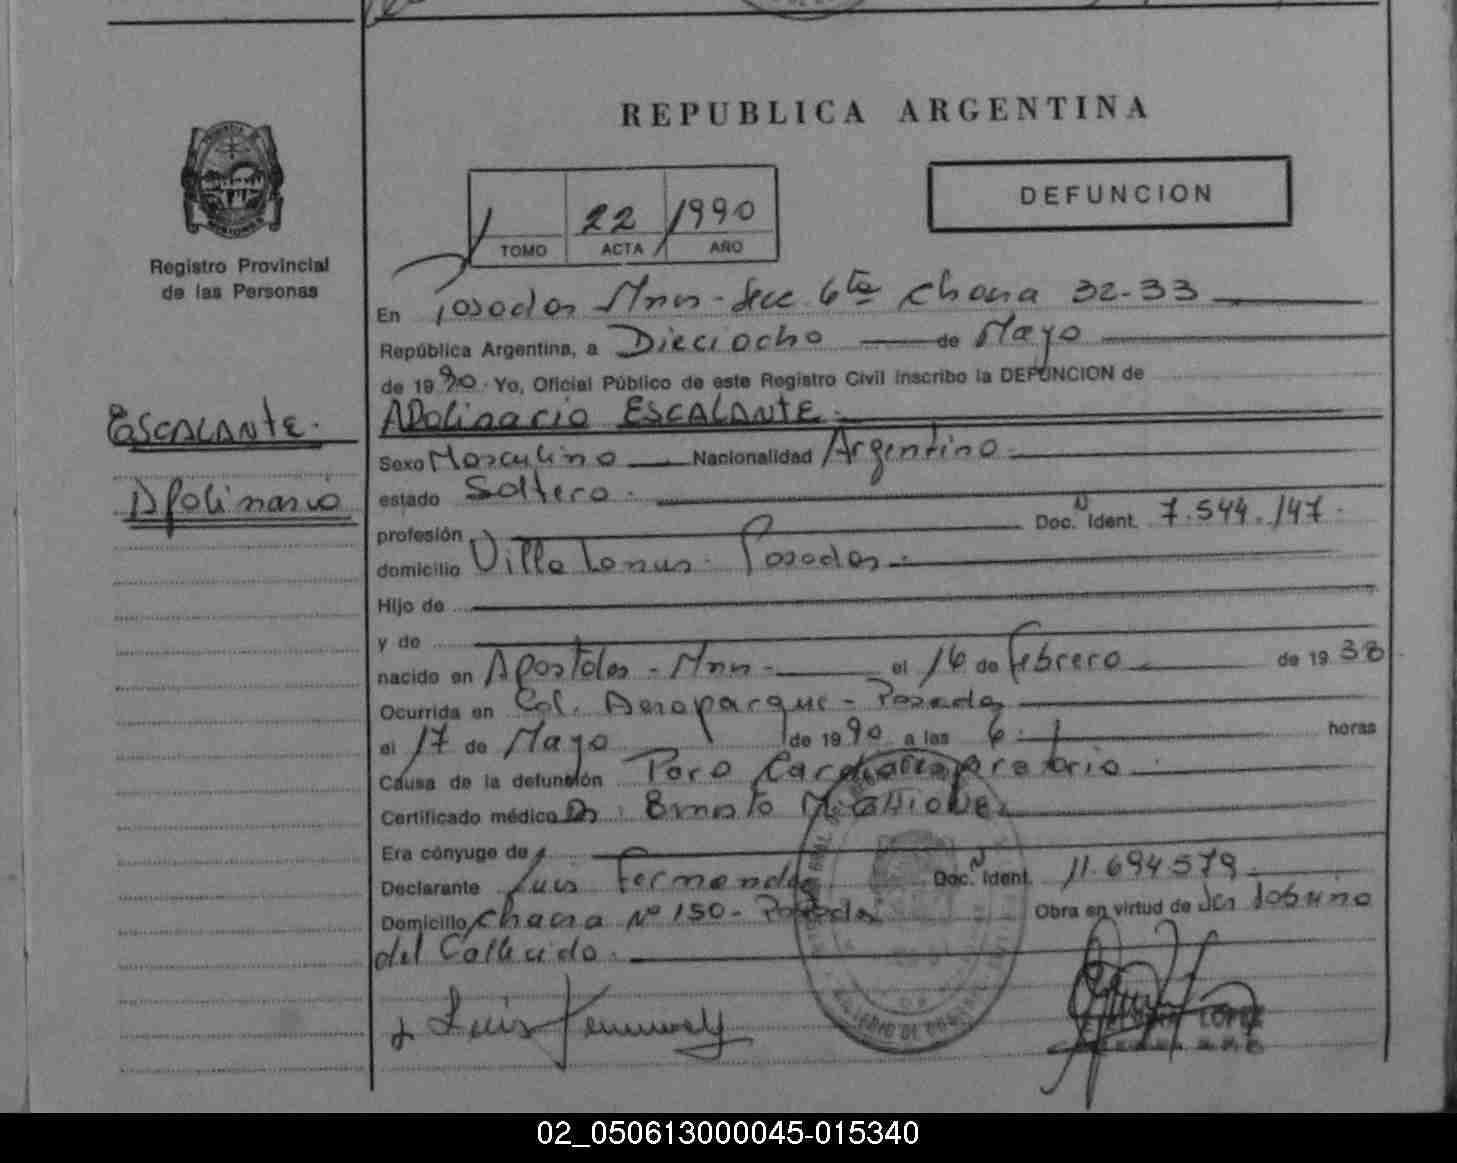 REPUBLICA ARGENTINA
DEFUNCION
1 22 1990
TOMO ACTA AÑO
Registro Provincial
de las Personas
En Posadas Mnes - Secc 6ta Chacra 32-33
República Argentina, a Dieciocho de Mayo
de 1990. Yo, Oficial Público de este Registro Civil inscribo la DEFUNCION de
ESCALANTE.
Apolinario
Apolinario ESCALANTE.
Sexo Masculino Nacionalidad Argentino
estado Soltero.
profesión Doc. N Ident. 7.544.147.
domicilio Villa Posadas.
Hijo de
y de
nacido en Apostoles - Mnes - el 16 de Febrero de 1938
Ocurrida en Col. Aeroparque - Posadas
el 17 de Mayo de 1990 a las 6. horas
Causa de la defunción Paro Cardiorespiratorio
Certificado médico Dr. Ernesto
Era cónyuge de
Declarante Luis Fernandez Doc. N Ident. 11.694.579.
Domicilio Chacra Nº 150 - Posadas Obra en virtud de Ser Sobrino
del Fallecido.
LOPEZ
02_050613000045-015340